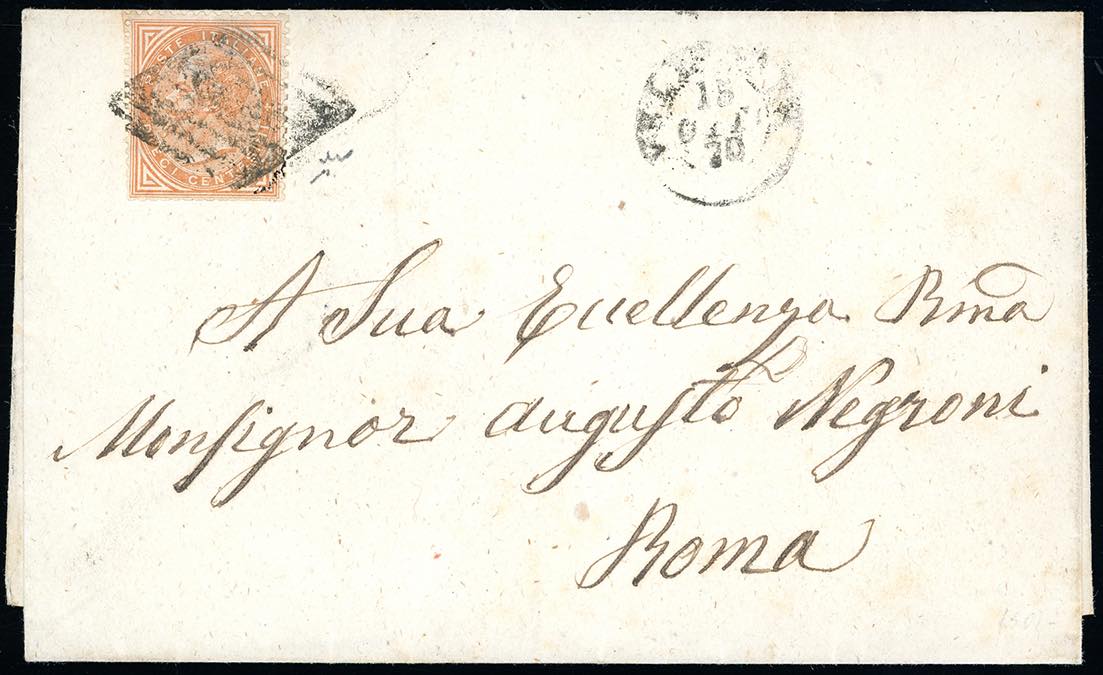 POSTE ITALIANE
CI CENT
18
OTT
70
A Sua Eccellenza Rm̃a
Monsignor Augusto Negroni
Roma